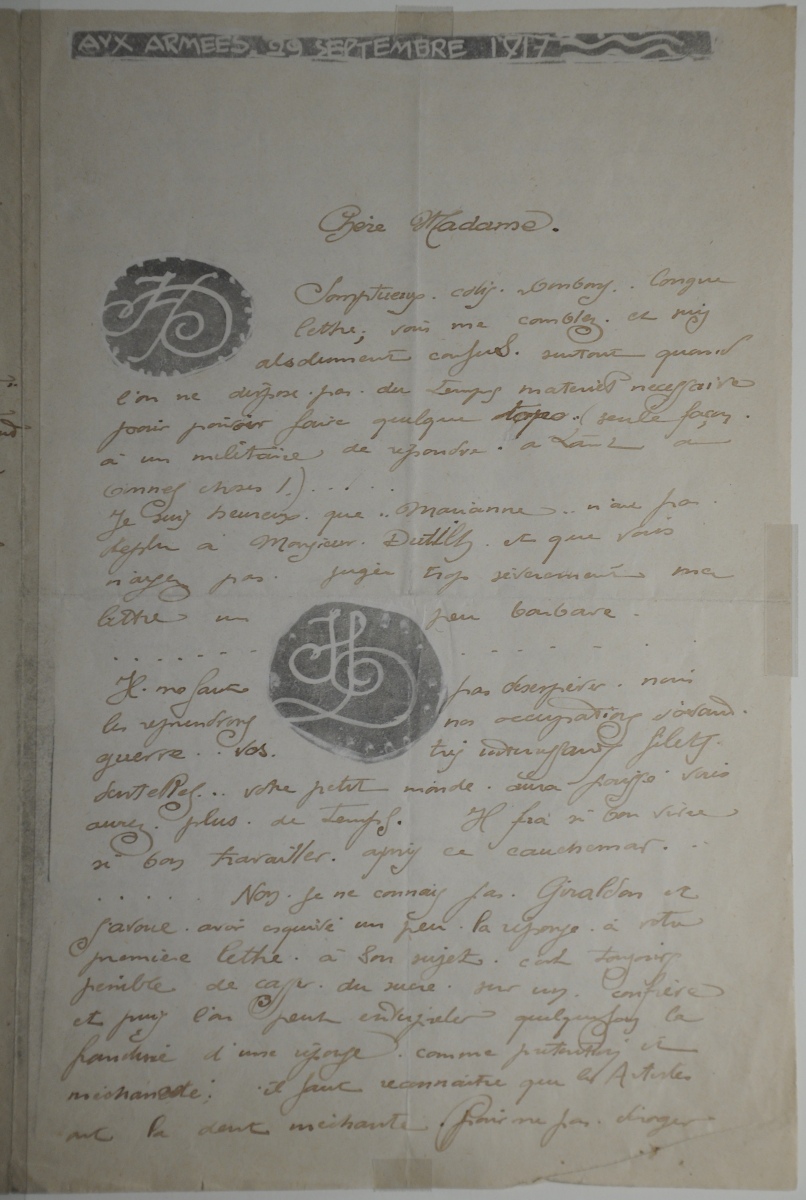 AUX ARMEES. 29 SEPTEMBRE 1917
Chère Madame.
Somptueux. colis. bonbons.. longue
lettre; vous me comblez. et suis
absolument confus. surtout quand
l'on ne dispose. pas. du temps materiel necessaire
pour pouvoir faire quelque topo. (seule façon.
à un militaire de repondre. a tant de
bonnes choses!).....
Je suis heureux. que.. Marianne.. n'ait pas.
deplu à Monsieur. et que vous
n'ayez pas. juger trop séverement ma
lettre un peu barbare.
Il ne faut pas desespérer. nous
les reprendrons nos occupations d'avant.
guerre.. vos. très interessants filets.
dentelles.. votre petit monde. aura poussé vous
aurez. plus. de temps. Il fera si bon vivre
si bon travailler. après ce cauchemar...
..... Non. je ne connais pas. Giraldon et
j'avoue. avoir esquivé un peu. la réponse. à votre
première lettre. à son sujet. c'est toujours
penible de casser. du sucre. sur un. confrère
et puis l'on peut interpréter quelquefois la
franchise d'une réponse. comme prétention et
méchanceté; il faut reconnaitre que les Artistes
ont la dent méchante. Pour ne pas. déroger